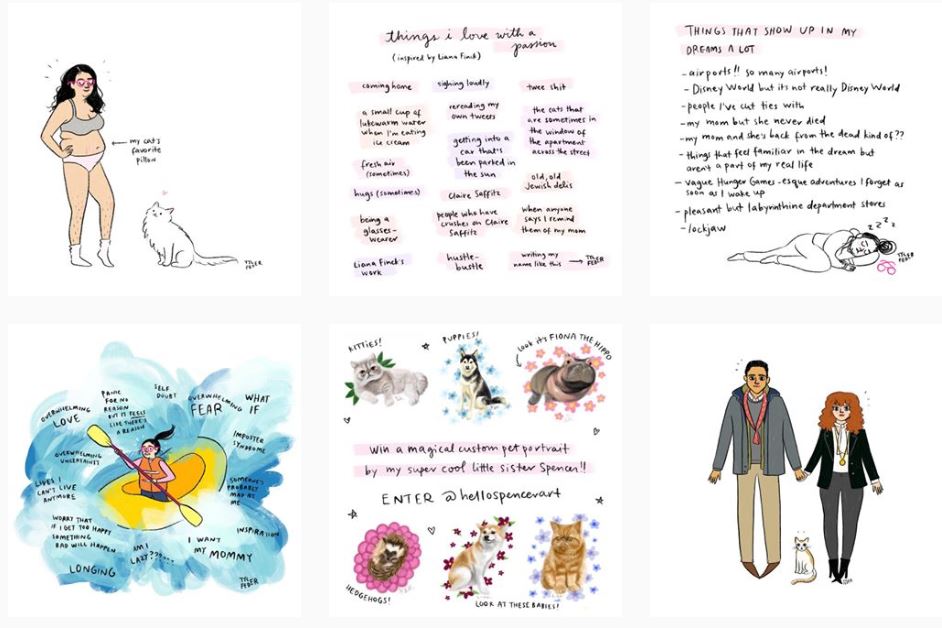 my cat's
favorite
pillow
TYLER
FEDER
things i love with a
passion
(inspired by Liana Finck)
coming home
a small cup of
lukewarm water
when I'm eating
ice cream
fresh air
(sometimes)
hugs (sometimes)
being a
glasses-
wearer
Liana Finck's
work
sighing loudly
rereading my
own tweets
getting into a
car that's
been parked in
the sun
Claire Saffitz
people who have
crushes on Claire
Saffitz
hustle-
bustle
twee shit
the cats that
are sometimes in
the window of
the apartment
across the street
old, old
Jewish delis
when anyone
says I remind
them of my mom
writing my
name like this
TYLER
FEDER
THINGS THAT SHOW UP IN MY
DREAMS A LOT
- airports!! so many airports!
- Disney World but its not really Disney World
- people I've cut ties with
- my mom but she never died
- my mom and she's back from the dead kind of??
- things that feel familiar in the dream but
aren't a part of my real life
- vague Hunger Games-esque adventures I forget as
soon as I wake up
- pleasant but labyrinthine department stores
- lockjaw
z z z z
TYLER
FEDER
OVERWHELMING
LOVE
PANIC
FOR NO
REASON
BUT IT FEELS
LIKE THERE'S
A REASON
SELF
DOUBT
OVERWHELMING
FEAR
WHAT
IF
OVERWHELMING
UNCERTAINTY
IMPOSTER
SYNDROME
LIVES I
CAN'T LIVE
ANYMORE
SOMEONE'S
PROBABLY
MAD AT
ME
WORRY THAT
IF I GET TOO HAPPY
SOMETHING
BAD WILL HAPPEN
AM I
LAZY????...
I WANT
MY MOMMY
INSPIRATION
LONGING
TYLER
FEDER
KITTIES!
PUPPIES!
LOOK IT'S FIONA THE HIPPO
WIN a magical custom pet portrait
by my super cool little sister Spencer!!
ENTER @hellospencerart
HEDGEHOGS!
LOOK AT THESE BABIES!